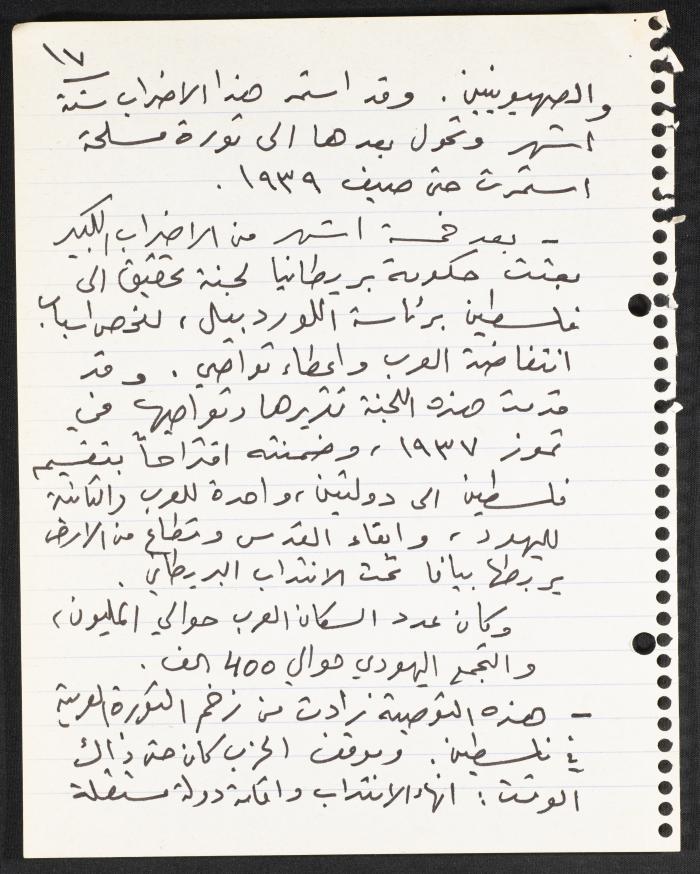 ١٧
والصهيونيين. وقد استمر هذا الاضراب ستة
اشهر وتحول بعدها الى ثورة مسلحة
استمرت حتى صيف ١٩٣٩.
- بعد خمسة اشهر من الاضراب الكبير
بعثت حكومة بريطانيا لجنة تحقيق الى
فلسطين برئاسة اللورد بيل، لفحص اسباب
انتفاضة العرب واعطاء تواصي. وقد
قدمت هذه اللجنة تقريرها وتواصيها في
تموز ١٩٣٧، وضمنته اقتراحاً بتقسيم
فلسطين الى دولتين، واحدة للعرب والثانية
لليهود، وابقاء القدس وقطاع من الارض
يربطها بيافا تحت الانتداب البريطاني.
وكان عدد السكان العرب حوالي المليون،
والتجمع اليهودي حوالي 400 الف.
- هذه التوصية زادت من زخم الثورة العربية
في فلسطين. وموقف الحزب كان حتى ذاك
الوقت: انهاء الانتداب واقامة دولة مستقلة